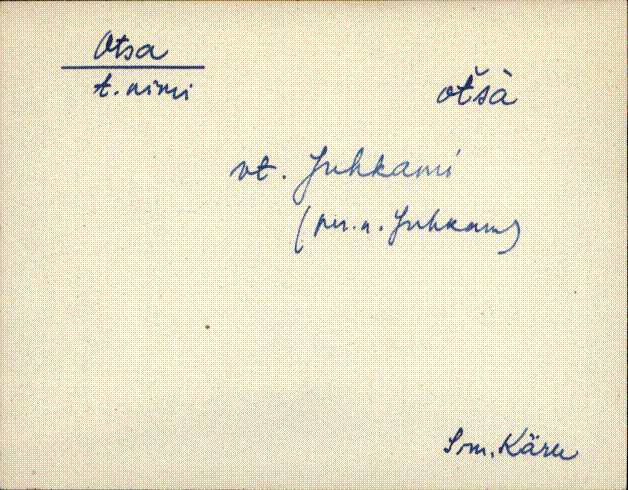 Otsa
t. nimi
otšà
vt. Juhkami
(per. n. Juhkam)
Sim. Käru